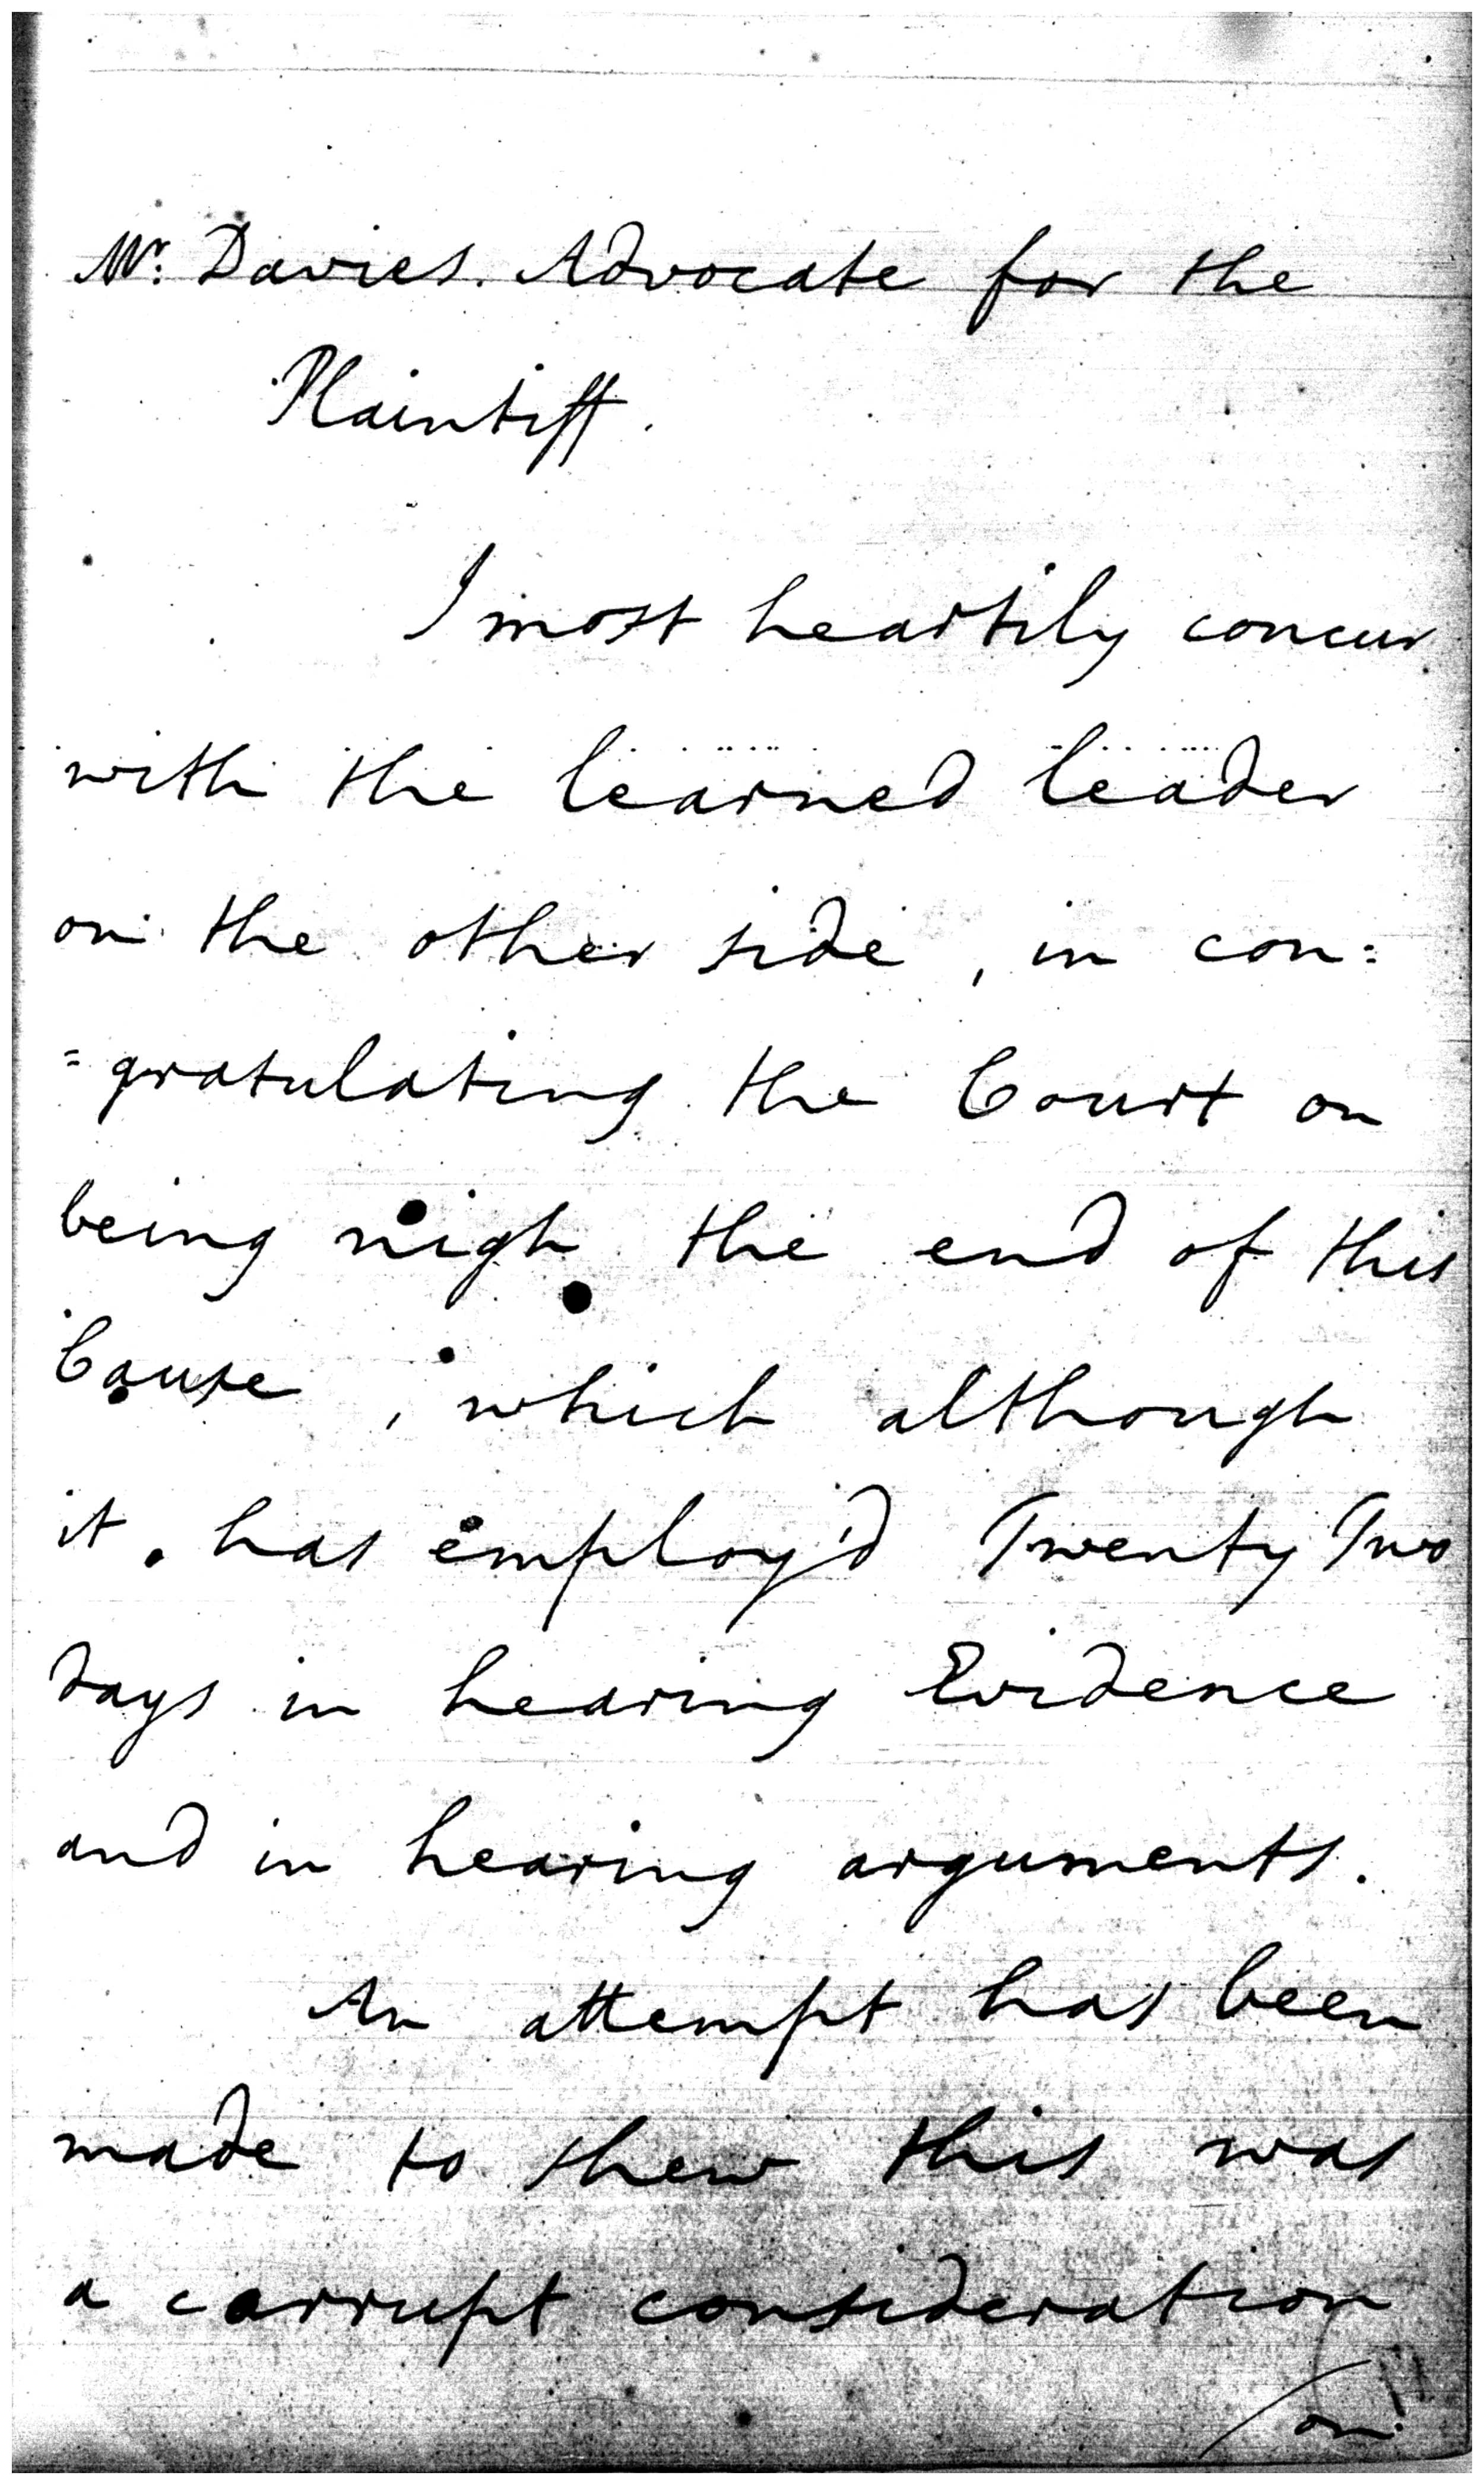 Mr. Davies. Advocate for the
Plaintiff.
I most heartily concur
with the learned leader
on the other side, in con=
=gratulating the Court on
being nigh the end of this
Cause, which although
it has employ'd Twenty Two
days in hearing Evidence
and in hearing arguments.
An attempt has been
made to shew this was
a corrupt consideration
on